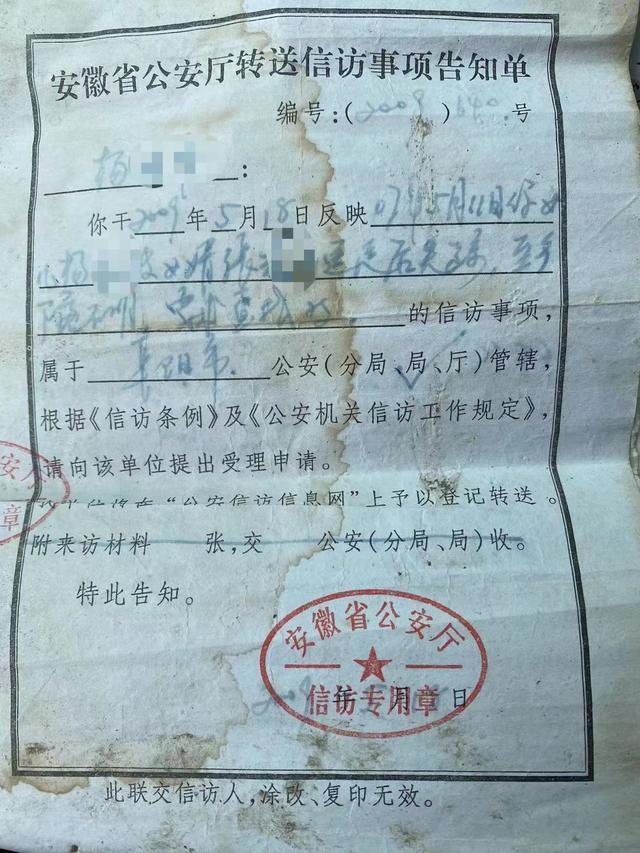 安徽省公安厅转送信访事项告知单
编号:(2009)640号
杨
:
你于2009年5月18日反映07年5月11日你女
儿杨 被女婿张 后失踪,至今
下落不明 的信访事项,
属于阜阳市公安(分局、局、厅)管辖,
根据《信访条例》及《公安机关信访工作规定》,
请向该单位提出受理申请。
“公安信访信息网”上予以登记转送。
附来访材料 张,交 公安(分局、局)收。
特此告知。
安徽省公安厅
信访专用章
2009年5月 日
公安厅
章
此联交信访人,涂改、复印无效。